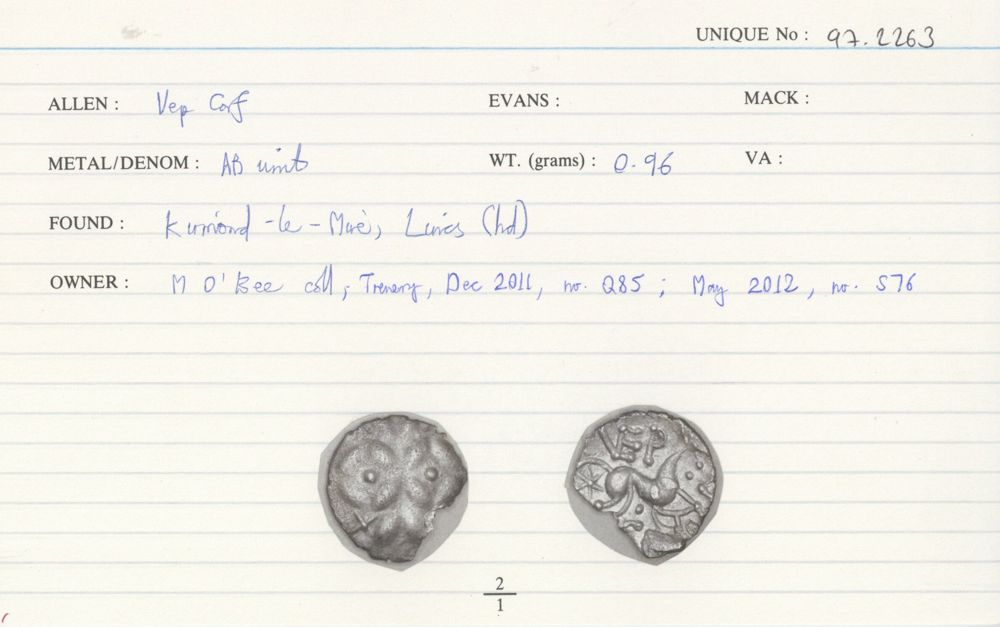 UNIQUE No : 97.2263
ALLEN : Vep Corf EVANS : MACK :
METAL/DENOM : AR unit WT. (grams) : 0.96 VA :
FOUND : Kirmond-le-Mire, Lincs (hd)
OWNER : M O'Bee coll; Trenery, Dec 2011, no. Q85; May 2012, no. S76
VEP
2
1